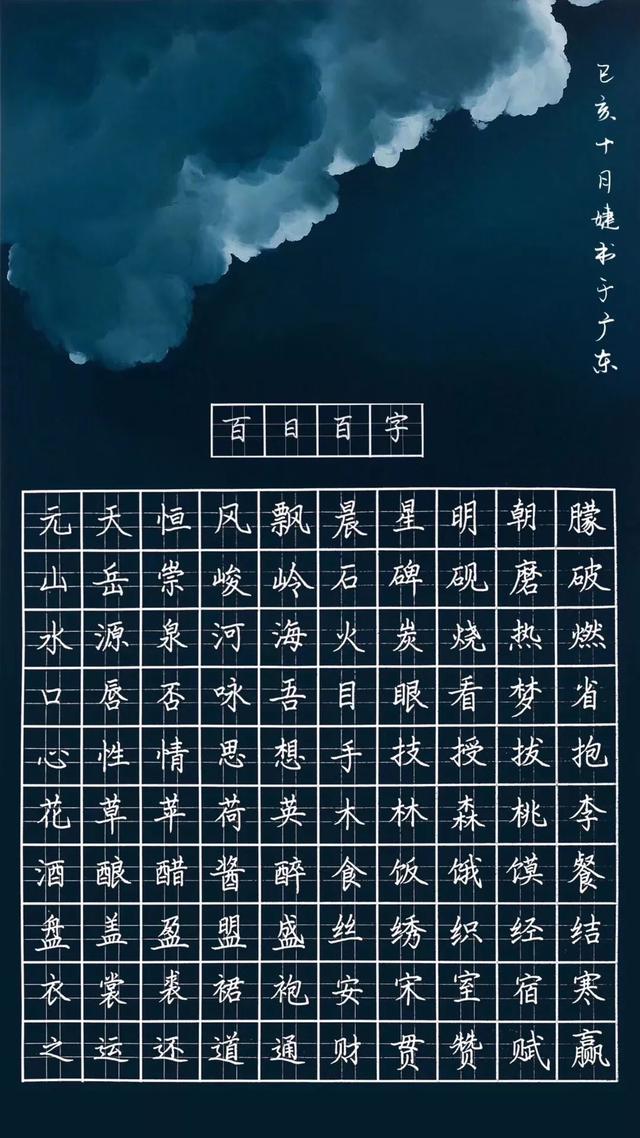 己亥十月婕书于广东
百日百字
元天恒风飘晨星明朝朦
山岳崇峻岭石碑砚磨破
水源泉河海火炭烧热燃
口唇否咏吾目眼看梦省
心性情思想手技授拔抱
花草苹荷英木林森桃李
酒酿醋酱醉食饭饿馍餐
盘盖盈盟盛丝绣织经结
衣裳裘裙袍安宋室宿寒
之运还道通财贯赞赋赢